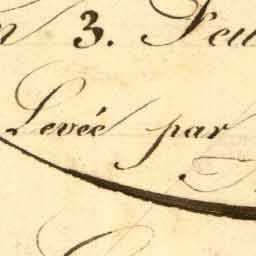 3. Feu
Levée par